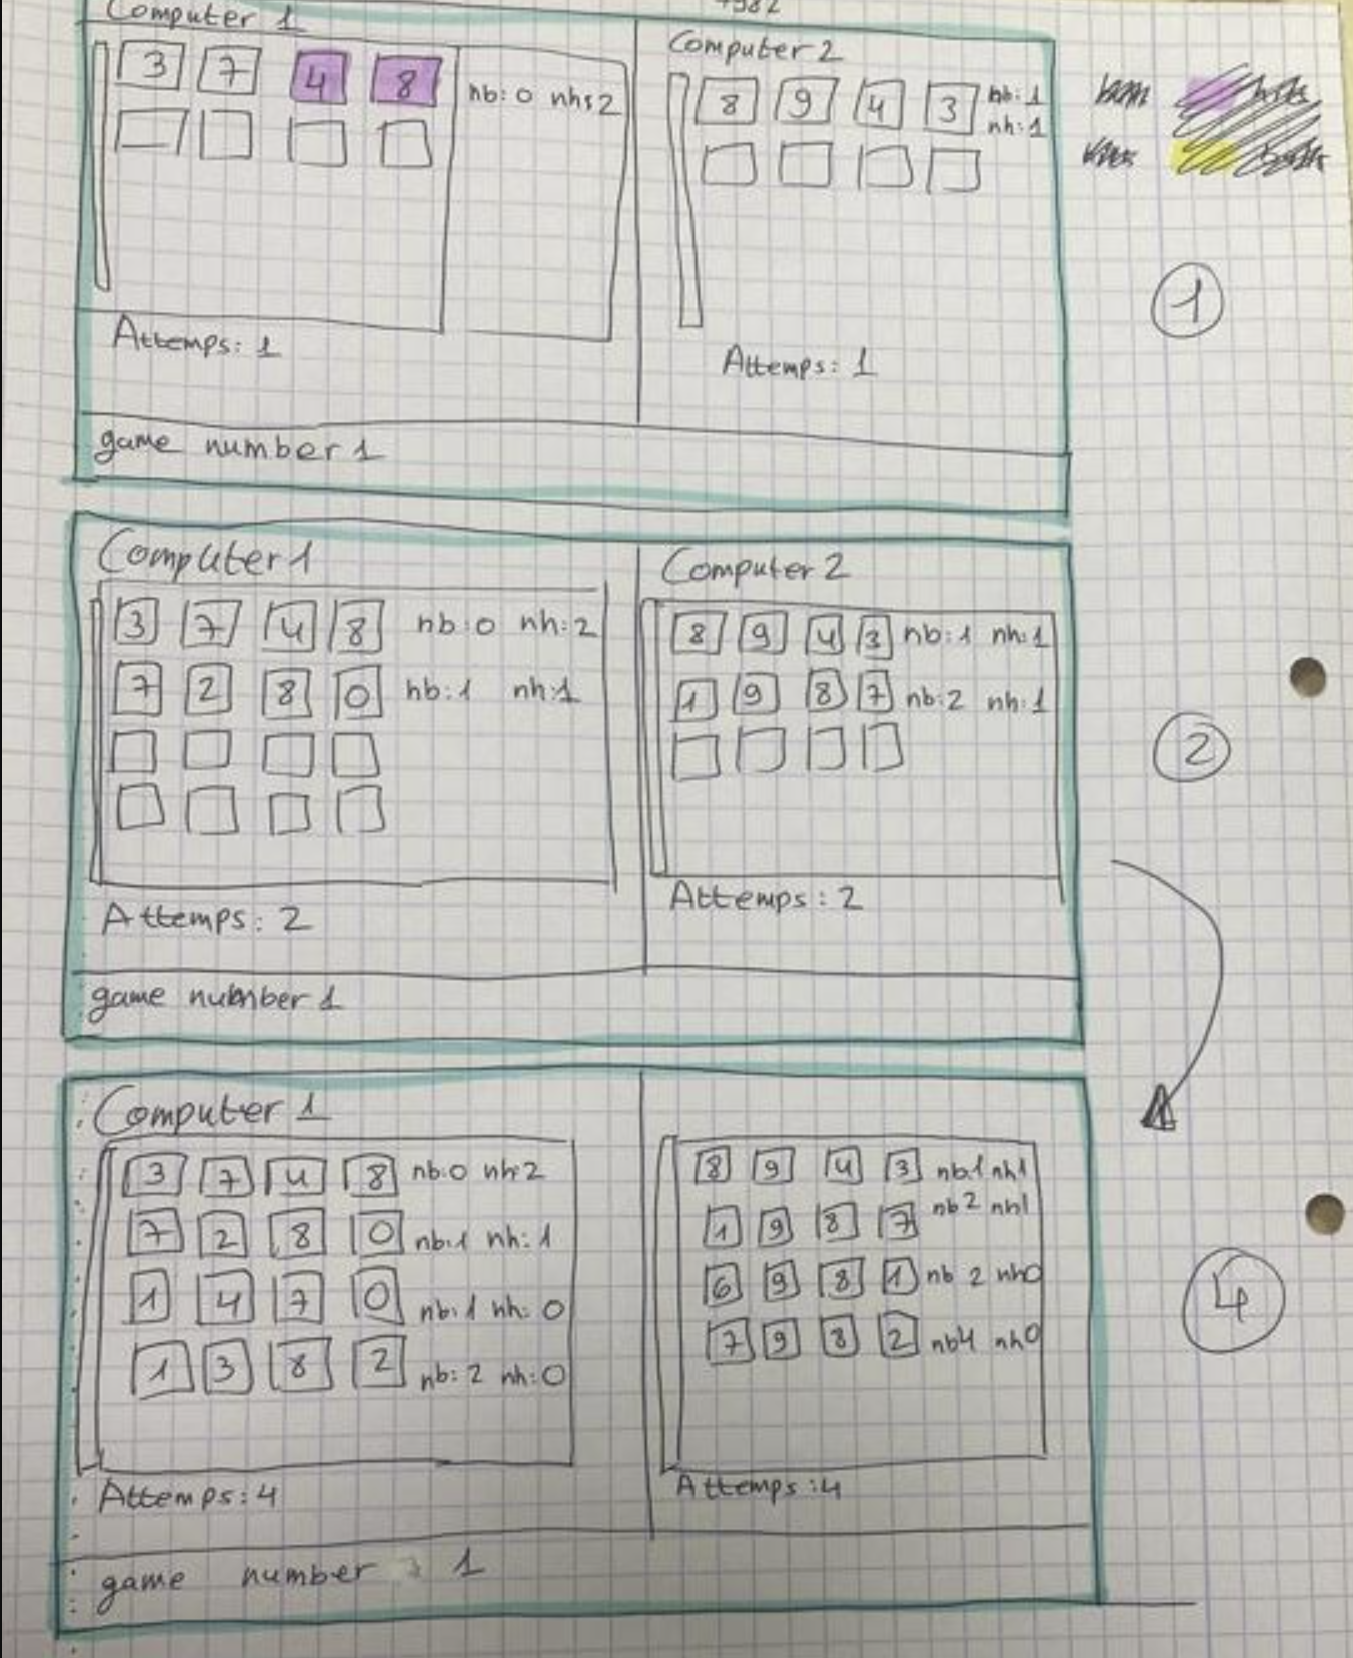 7982
Computer 1
3 7 4 8 nb: 0 nh:2
Attemps: 1
Computer 2
8 9 4 3 nb: 1
nh: 1
Attemps: 1
game number 1
1
Computer 1
3 7 4 8 nb:0 nh:2
7 2 8 0 nb:1 nh:1
Attemps: 2
Computer 2
8 9 4 3 nb:1 nh:1
1 9 8 7 nb:2 nh:1
Attemps: 2
game number 1
2
Computer 1
3 7 4 8 nb:0 nh:2
7 2 8 0 nb:1 nh:1
1 4 7 0 nb:1 nh:0
1 3 8 2 nb:2 nh:0
Attemps:4
8 9 4 3 nb1 nh1
1 9 8 7 nb2 nh1
6 9 8 1 nb 2 nh0
7 9 8 2 nb4 nh0
Attemps:4
game number 1
4